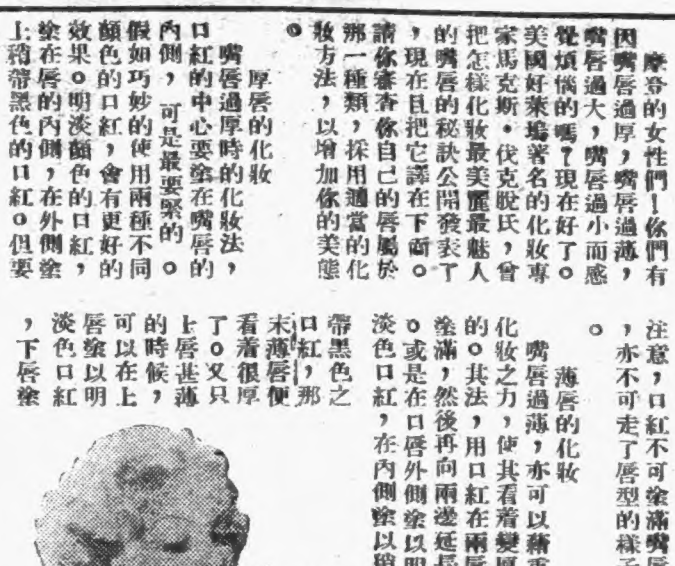 摩登的女性們!你們有
因嘴唇過厚,嘴唇過薄,
嘴唇過大,嘴唇過小而感
覺煩惱的嗎?現在好了。
美國好萊塢著名的化妝專
家馬克斯·伐克脫氏,曾
把怎樣化妝最美麗最魅人
的嘴唇的秘訣公開發表了
,現在且把它譯在下面。
請你審查你自己的唇屬於
那一種類,採用適當的化
妝方法,以增加你的美態
。
厚唇的化妝
嘴唇過厚時的化妝法,
口紅的中心要塗在嘴唇的
內側,可是最要緊的。
假如巧妙的使用兩種不同
顏色的口紅,會有更好的
效果。明淡顏色的口紅,
塗在唇的內側,在外側塗
上稍帶黑色的口紅。但要
注意,口紅不可塗滿嘴唇
,亦不可走了唇型的樣子
。
薄唇的化妝
嘴唇過薄,亦可以藉重
化妝之力,使其看着變厚
的。其法,用口紅在兩唇
塗滿,然後再向兩邊延長
。或是在口唇外側塗以明
淡色口紅,在內側塗以稍
帶黑色之
口紅,那
末薄唇便
看着很厚
了。又只
上唇甚薄
的時候,
可以在上
唇塗以明
淡色口紅
,下唇塗